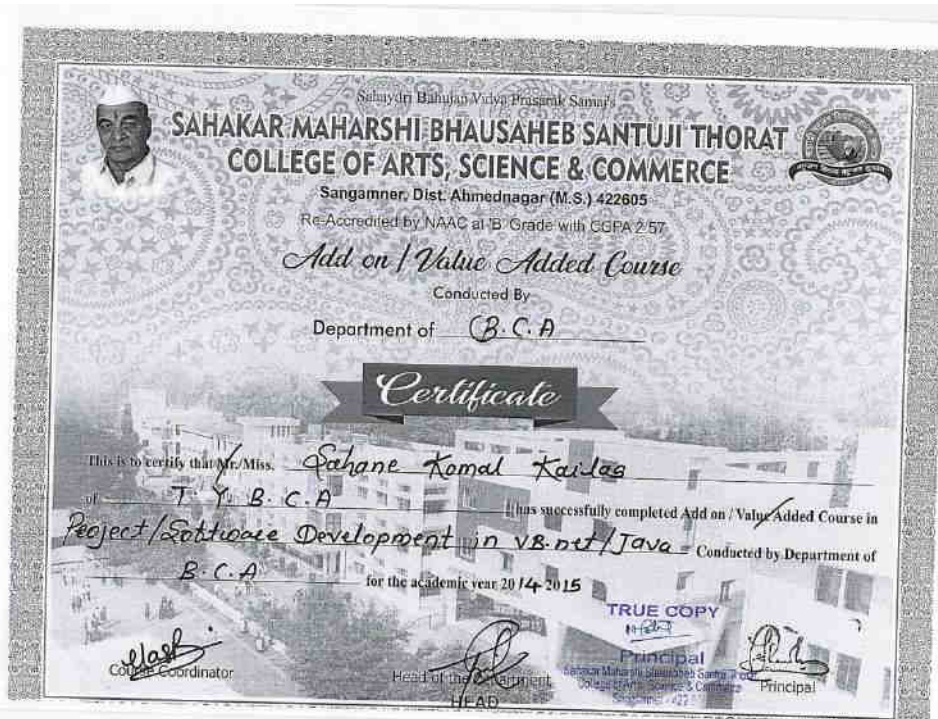 Sahaydri Bahujan Vidya Prasarak Samaj's
SAHAKAR MAHARSHI BHAUSAHEB SANTUJI THORAT
COLLEGE OF ARTS, SCIENCE & COMMERCE
Sangamner, Dist. Ahmednagar (M.S.) 422605
Re-Accredited by NAAC at 'B' Grade with CGPA 2.57
Add on / Value Added Course
Conducted By
Department of B.C.A
Certificate
This is to certify that Mr./Miss. Sahane Komal Kailas
of T. Y. B. C. A has successfully completed Add on / Value Added Course in
Project/Software Development in VB.net/Java Conducted by Department of
B.C.A for the academic year 2014-2015
TRUE COPY
Principal
Sahakar Maharshi Bhausaheb Santuji Thorat
College of Arts, Science & Commerce
Course Coordinator
Head of the Department
HEAD
Principal